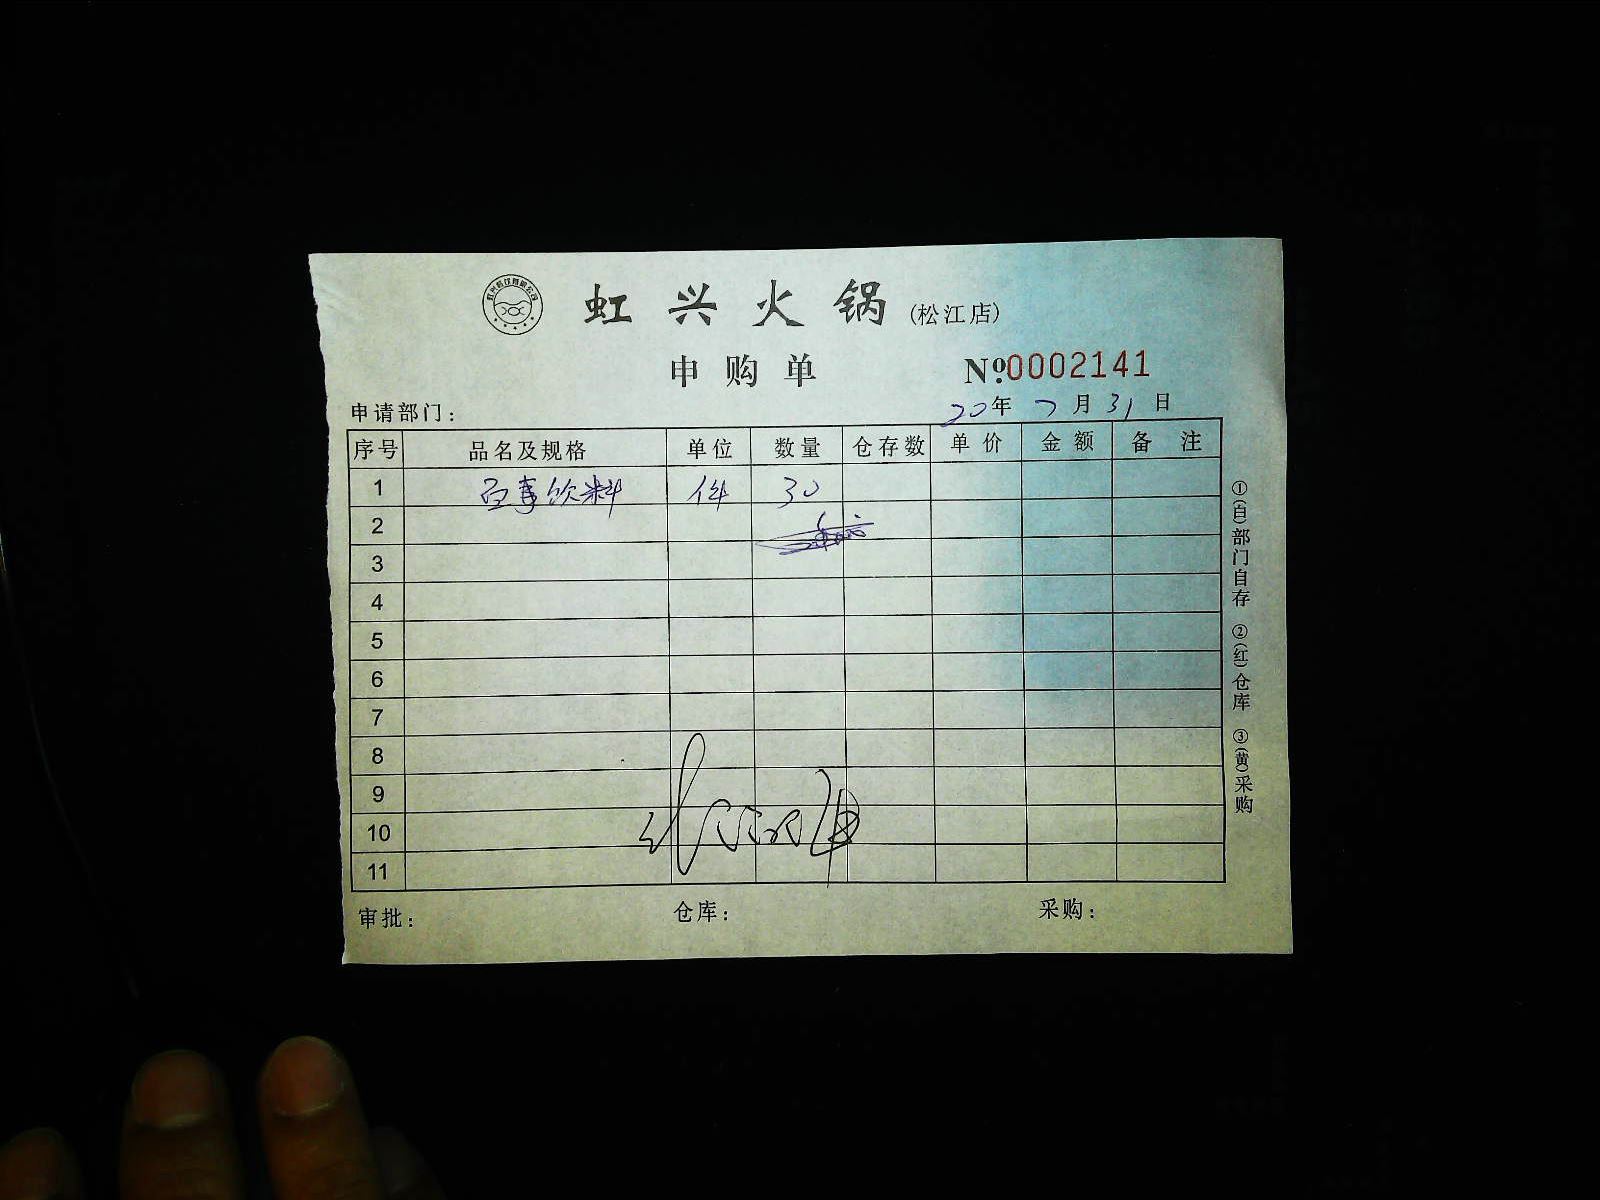 虹兴火锅(松江店)
申购单 №0002141
申请部门: 20年7月31日
序号 品名及规格 单位 数量 仓存数 单价 金额 备注
1 百事饮料 件 30
2
3
4
5
6
7
8
9
10
11
审批: 仓库: 采购:
①(白)部门自存 ②(红)仓库 ③(黄)采购